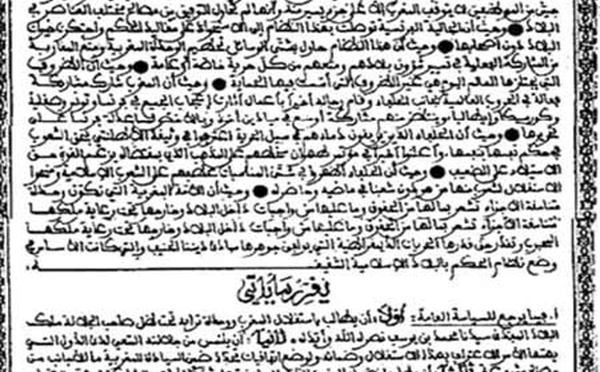 جيش من الموظفين لا يتوقف المغرب إلا على جزء يسير منه وأنها لم تحاول التوفيق بين مصالح مختلف العناصر في
البلاد ● وحيث أن الجالية الفرنسية توصلت بهذا النظام إلى الاستحواذ على مقاليد الحكم واحتكرت خيرات
البلاد دون أصحابها ● وحيث أن هذا النظام حاول بشتى الوسائل تحطيم الوحدة المغربية ومنع المغاربة
من المشاركة الفعلية في تسيير شؤون بلادهم ومنعهم من كل حرية خاصة أو عامة ● وحيث أن الظروف
التي يجتازها العالم اليوم هي غير الظروف التي أسست فيها الحماية ● وحيث أن المغرب شارك مشاركة
فعالة في الحروب العالمية بجانب الحلفاء وقام رجاله أخيرا بأعمال أثارت إعجاب الجميع في فرنسا وتونس وصقلية
وكورسيكا وإيطاليا وينتظر منهم مشاركة أوسع في ميادين أخرى وبالأخص لمساعدة فرنسا على
تحريرها ● وحيث أن الحلفاء الذين يريقون دماءهم في سبيل الحرية اعترفوا في وثيقة الأطلنتي بحق الشعوب
في حكم نفسها بنفسها وأعلنوا أخيرا في مؤتمر طهران سخطهم على المذهب الذي بمقتضاه يزعم القوي حق
الاستيلاء على الضعيف ● وحيث أن الحلفاء أظهروا في شتى المناسبات عطفهم على الشعوب الإسلامية ومنحوا
الاستقلال لشعوب منها من هو دون شعبنا في ماضيه وحاضره ● وحيث أن الأمة المغربية التي تكون وحدة
متناسقة الأجزاء تشعر بما لها من الحقوق وما عليها من واجبات داخل البلاد وخارجها تحت رعاية ملكها
متناسقة الأجزاء تشعر بما لها من الحقوق وما عليها من واجبات داخل البلاد وخارجها تحت رعاية ملكها
المحبوب وتقدر حق قدرها الحريات الديمقراطية التي جوهرها مبادئ ديننا الحنيف والتي كانت الأساس في
وضع نظام الحكم بالبلاد الإسلامية الشقيقة
يقرر ما يأتي
أ. فيما يرجع للسياسة العامة: أولا: أن يطالب باستقلال المغرب ووحدة ترابه تحت ظل صاحب الجلالة ملك
البلاد المفدى سيدنا محمد بن يوسف نصره الله وأيده. ثانيا: أن يلتمس من جلالته السعي لدى الدول التي
يهمها الأمر الاعتراف بهذا الاستقلال وضمانه ولوضع اتفاقيات تحدد ضمن السيادة المغربية ما للأجانب من